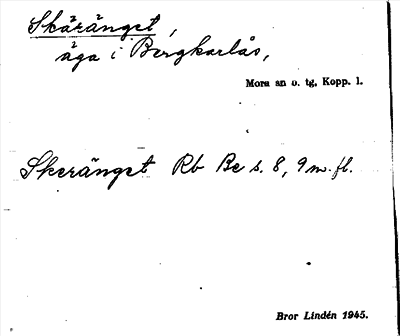 Skäränget,
äga i Bergkarlås,
Mora sn o. tg, Kopp. l.
Skeränget Rb Be s. 8, 9 m. fl.
Bror Lindén 1945.